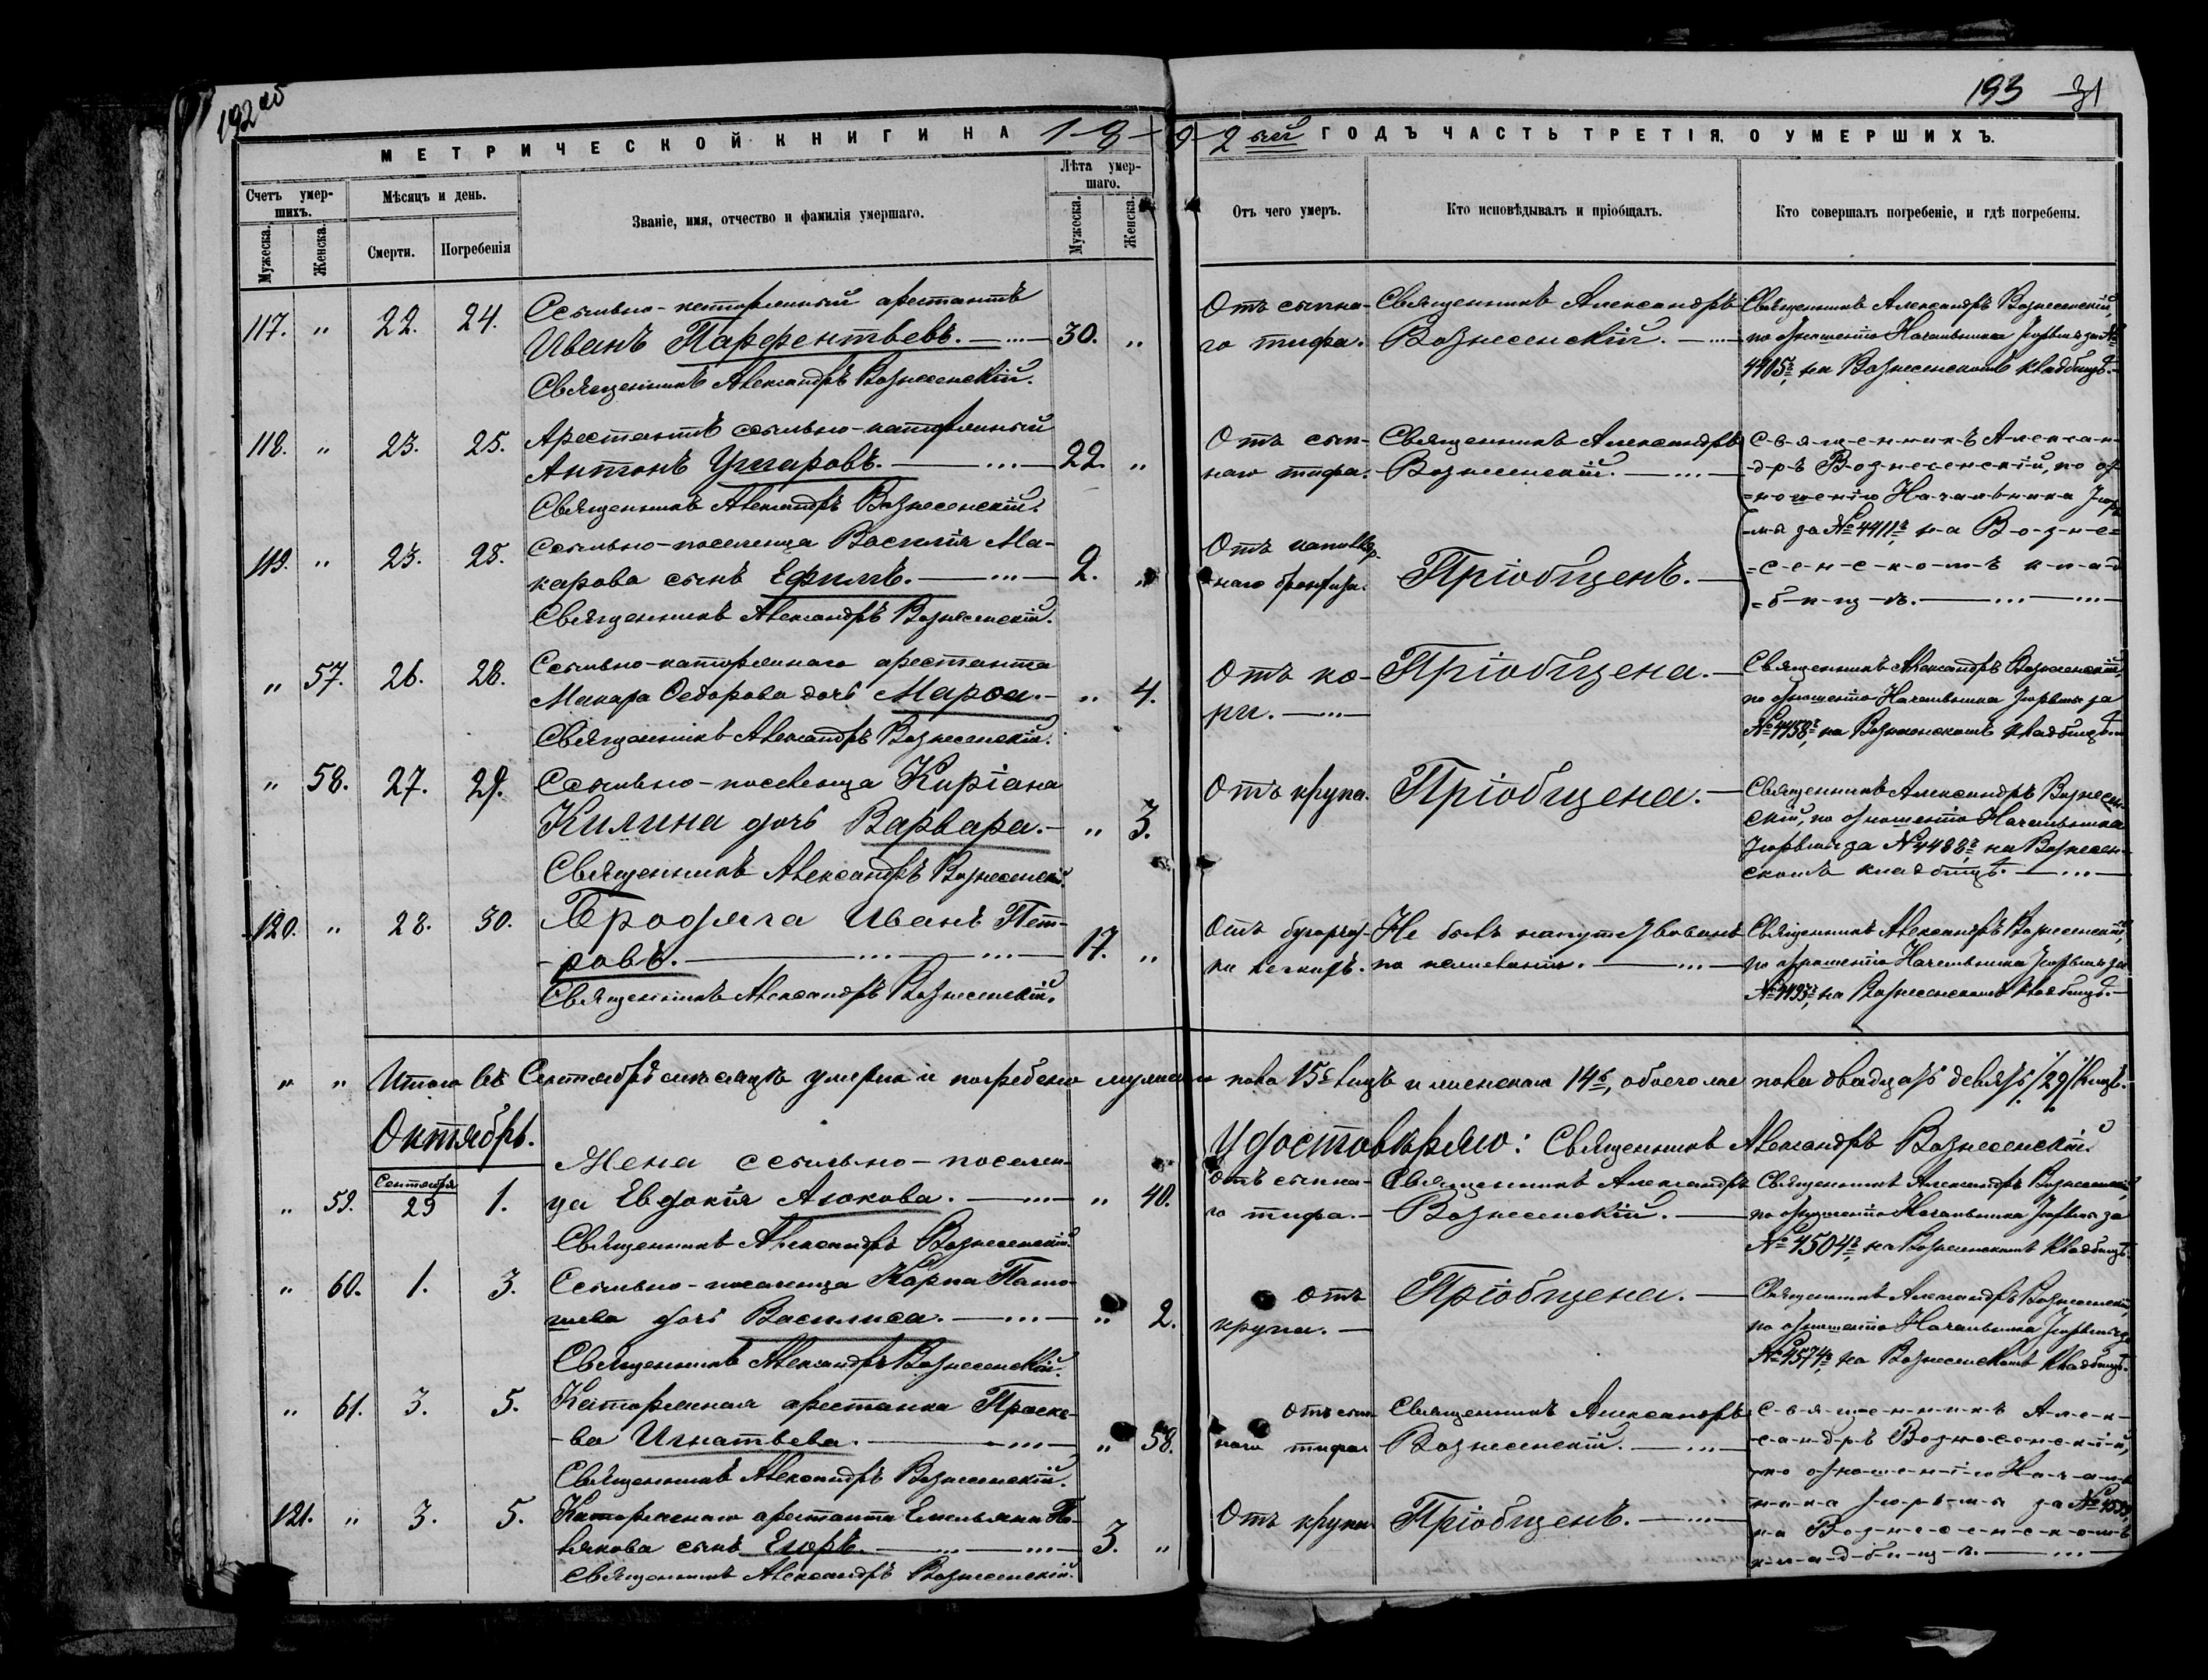 192 об
193 31
МЕТРИЧЕСКОЙ КНИГИ НА 1892 ый ГОДЪ ЧАСТЬ ТРЕТІЯ, О УМЕРШИХЪ.
Счетъ умер-
шихъ.
Мужеска.
Женска.
Мѣсяцъ и день.
Смерти.
Погребенія
Званіе, имя, отчество и фамилія умершаго.
Лѣта умер-
шаго.
Мужеска.
Женска.
Отъ чего умеръ.
Кто исповѣдывалъ и пріобщалъ.
Кто совершалъ погребеніе, и гдѣ погребены.
117. " 22. 24.
Ссыльно-каторжный арестантъ
Иванъ Парфентьевъ. 30. "
Священникъ Александръ Вознесенскій.
Отъ сыпна-
го тифа.
Священникъ Александръ
Вознесенскій.
Священникъ Александръ Вознесенскій,
по отношенію Начальника Тюрьмы за №
4405, на Вознесенскомъ кладбищѣ.
118. " 23. 25.
Арестантъ ссыльно-каторжный
Антонъ 22. "
Священникъ Александръ Вознесенскій.
Отъ сып-
наго тифа.
Священникъ Александръ
Вознесенскій.
Священникъ Алексан-
дръ Вознесенскій, по от-
ношенію Начальника Тюрь-
мы за № 4411 на Возне-
сенскомъ клад-
бищѣ.
119. " 23. 25.
Ссыльно-поселенца Василія Ма-
карова сынъ Ефимъ. 2. "
Священникъ Александръ Вознесенскій.
Отъ капилляр-
наго бронхита.
Пріобщенъ.
" 57. 26. 28.
Ссыльно-каторжнаго арестанта
Макара Ѳедорова дочь Марѳа. " 4.
Священникъ Александръ Вознесенскій.
Отъ ко-
ри.
Пріобщена.
Священникъ Александръ Вознесенскій,
по отношенію Начальника Тюрьмы за
№ 4458, на Вознесенскомъ кладбищѣ
" 58. 27. 29.
Ссыльно-поселенца Киріана
Килина дочь Варвара. " 3.
Священникъ Александръ Вознесенскій.
Отъ крупа.
Пріобщена.
Священникъ Александръ Вознесен-
скій, по отношенію Начальника
Тюрьмы за № 4488, на Вознесен-
скомъ кладбищѣ.
120. " 28. 30.
Бродяга Иванъ Пет-
ровъ. 17. "
Священникъ Александръ Вознесенскій.
Отъ бугорчат-
ки легкихъ.
Не былъ напутствованъ
по
Священникъ Александръ Вознесенскій,
по отношенію Начальника Тюрьмы за
№ 4493, на Вознесенскомъ кладбищѣ.
" " Итого въ Сентябрѣ мѣсяцѣ умерло и погребено мужеска пола 15 лицъ и женскаго 14, обоего же пола двадцать девять /29/ лицъ.
Октябрь.
Удостовѣряю: Священникъ Александръ Вознесенскій.
" 59. Сентября 29 1.
Жена ссыльно-поселен-
ца Евдокія Аюкова. " 40.
Священникъ Александръ Вознесенскій.
Отъ сыпна-
го тифа.
Священникъ Александръ
Вознесенскій.
Священникъ Александръ Вознесенскій,
по отношенію Начальника Тюрьмы за
№ 4504, на Вознесенскомъ кладбищѣ.
" 60. 1. 3.
Ссыльно-поселенца Карпа
дочь Василиса. " 2.
Священникъ Александръ Вознесенскій.
отъ
крупа.
Пріобщена.
Священникъ Александръ Вознесенскій,
по отношенію Начальника Тюрьмы за
№ 4574, на Вознесенскомъ кладбищѣ.
" 61. 3. 5.
Каторжная арестанка Праско-
ва Игнатьева. " 58.
Священникъ Александръ Вознесенскій.
отъ сып-
наго тифа
Священникъ Александръ
Вознесенскій.
Священникъ Алек-
сандръ Вознесенскій,
по отношенію Началь-
ника Тюрьмы за №
на Вознесенскомъ
кладбищѣ.
121. " 3. 5.
Каторжнаго арестанта Емельяна По-
лякова сынъ Егоръ. 3. "
Священникъ Александръ Вознесенскій.
Отъ крупа
Пріобщенъ.